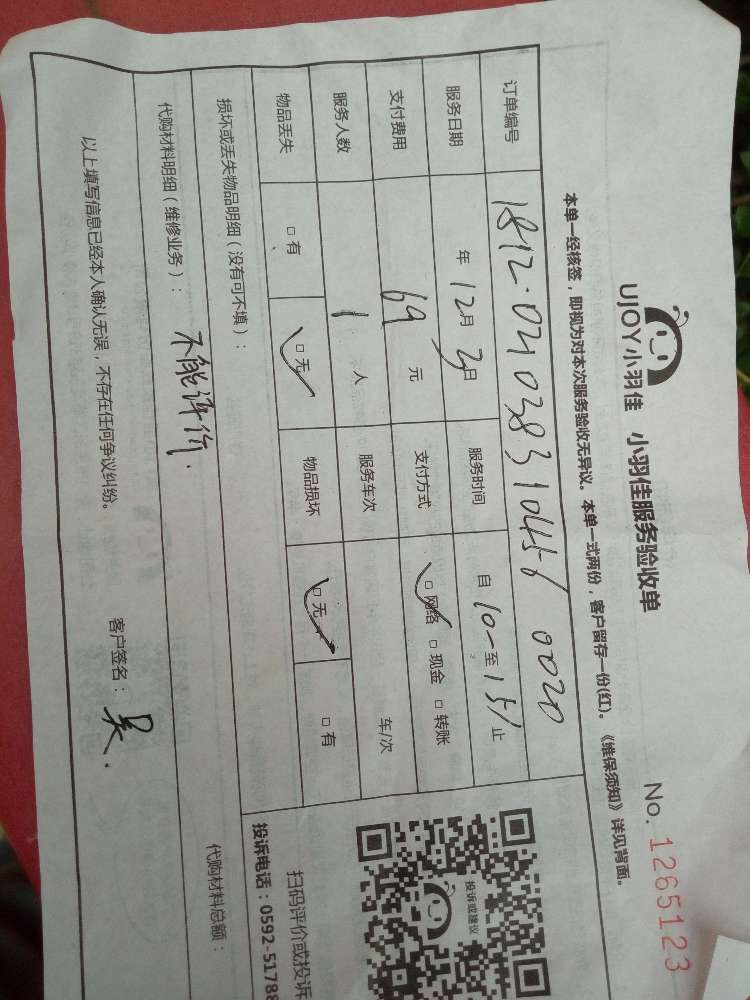 UJOY小羽佳 小羽佳服务验收单
No. 1265123
本单一经核签，即视为对本次服务验收无异议。本单一式两份，客户留存一份(红)。《维保须知》详见背面。
订单编号
服务日期 年 12月 3日 服务时间 自 10 至 15 止
支付费用 69 元 支付方式 □网络 □现金 □转账
服务人数 1 人 服务车次 车/次
物品丢失 □有 □无 物品损坏 □无 □有
损坏或丢失物品明细（没有可不填）：
代购材料明细（维修业务）： 不能评价. 代购材料总额：
以上填写信息已经本人确认无误，不存在任何争议纠纷。 客户签名： 吴.
投诉或建议
扫码评价或投诉
投诉电话：0592-5178